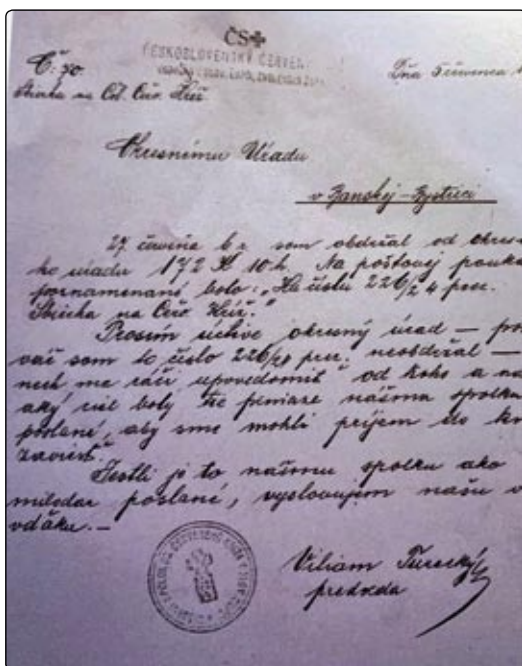 ČS✚
ČESKOSLOVENSKÝ ČERVEN
Č: 70.
Dňa 5 července
Zbierka na Čsl. Červ. Kríž
Okresnému Úradu
v Banskej-Bystrici
27. června b. r. som obdržal od okres-
ho uradu 172 K 10 h. Na poštovej pouká
poznamenané bolo: „Ku číslu 226/ 4 prez.
Zbierka na Červ. Kríž."
Prosím úctive okresný úrad — po
váč som to číslo 226/ prez. neobdržal —
nech me ráči upovedomiť od koho a na
aký cieľ boly tie peniaze nášmu spolku
poslané, aby sme mohli príjem do kn
zaviesť.
Jestli je to nášmu spolku ako
milodar poslané, vyslovujem našu v
vďaku. —
Viliam Turecký
predseda